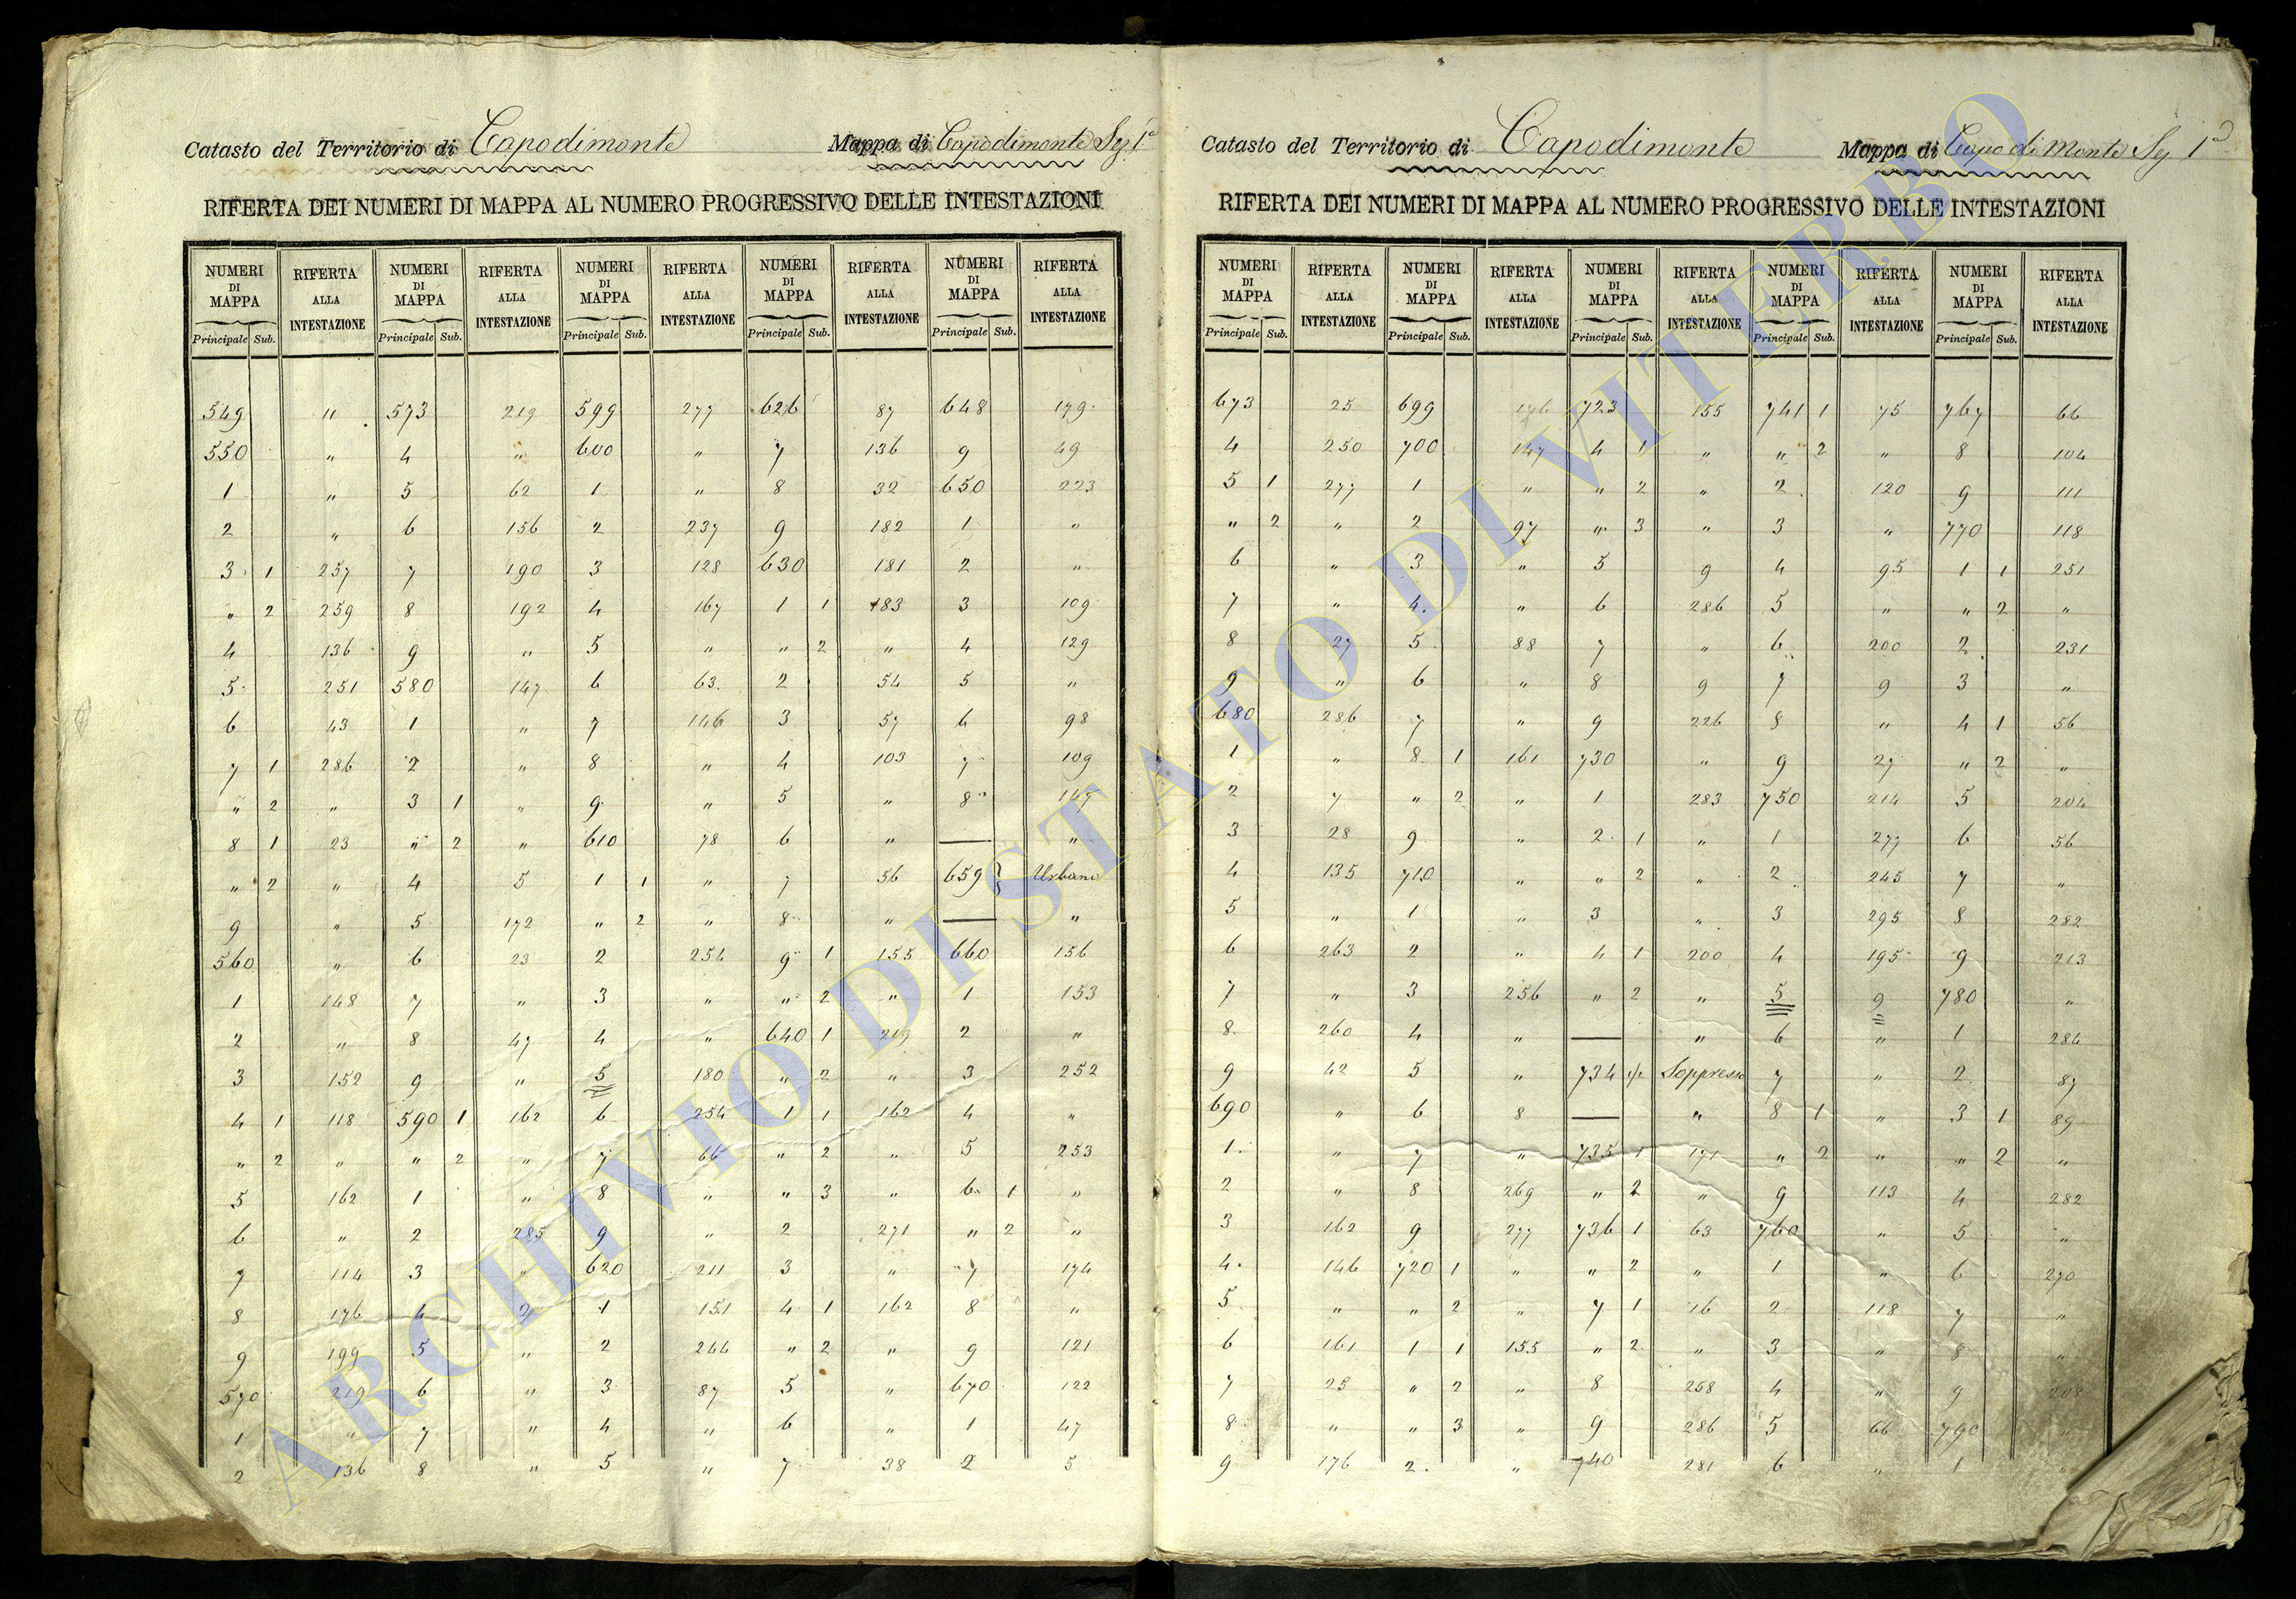 Catasto del Territorio di Capodimonte Mappa di Capodimonte Sez 1ª
RIFERTA DEI NUMERI DI MAPPA AL NUMERO PROGRESSIVO DELLE INTESTAZIONI
NUMERI DI MAPPA RIFERTA ALLA INTESTAZIONE NUMERI DI MAPPA RIFERTA ALLA INTESTAZIONE NUMERI DI MAPPA RIFERTA ALLA INTESTAZIONE NUMERI DI MAPPA RIFERTA ALLA INTESTAZIONE NUMERI DI MAPPA RIFERTA ALLA INTESTAZIONE
Principale Sub. Principale Sub. Principale Sub. Principale Sub. Principale Sub.
549 11 573 219 599 277 626 87 648 179
550 " 4 " 600 " 7 136 9 49
1 " 5 62 1 " 8 32 650 223
2 " 6 156 2 237 9 182 1 "
3 1 257 7 190 3 128 630 181 2 "
" 2 259 8 192 4 167 1 1 183 3 109
4 136 9 " 5 " " 2 " 4 129
5 251 580 147 6 63 2 54 5 "
6 43 1 " 7 146 3 57 6 98
7 1 286 2 " 8 " 4 103 7 109
" 2 " 3 1 " 9 " 5 " 8 147
8 1 23 " 2 " 610 78 6 " — "
" 2 " 4 5 1 1 " 7 56 659 Urbano
9 " 5 172 " 2 " 8 " — "
560 " 6 23 2 254 9 1 155 660 156
1 148 7 " 3 " " 2 " 1 153
2 " 8 47 4 " 640 1 219 2 "
3 152 9 " 5 180 " 2 " 3 252
4 1 118 590 1 162 6 254 1 1 162 4 "
" 2 " " 2 " 7 66 " 2 " 5 253
5 162 1 " 8 " " 3 " 6 1 "
6 " 2 285 9 " 2 271 " 2 "
7 114 3 " 620 211 3 " 7 174
8 176 4 2 1 151 4 1 162 8 "
9 199 5 " 2 244 " 2 " 9 121
570 219 6 " 3 87 5 " 670 122
1 " 7 " 4 " 6 " 1 47
2 136 8 " 5 " 7 38 2 5
Catasto del Territorio di Capodimonte Mappa di Capo di Monte Sez 1ª
RIFERTA DEI NUMERI DI MAPPA AL NUMERO PROGRESSIVO DELLE INTESTAZIONI
NUMERI DI MAPPA RIFERTA ALLA INTESTAZIONE NUMERI DI MAPPA RIFERTA ALLA INTESTAZIONE NUMERI DI MAPPA RIFERTA ALLA INTESTAZIONE NUMERI DI MAPPA RIFERTA ALLA INTESTAZIONE NUMERI DI MAPPA RIFERTA ALLA INTESTAZIONE
Principale Sub. Principale Sub. Principale Sub. Principale Sub. Principale Sub.
673 25 699 176 723 155 741 1 75 767 66
4 250 700 147 4 1 " " 2 " 8 104
5 1 277 1 " " 2 " 2 120 9 111
" 2 " 2 97 " 3 " 3 " 770 118
6 " 3 " 5 9 4 95 1 1 251
7 " 4 " 6 286 5 " " 2 "
8 27 5 88 7 " 6 200 2 231
9 " 6 " 8 9 7 9 3 "
680 286 7 " 9 226 8 " 4 1 56
1 " 8 1 161 730 " 9 27 " 2 "
2 7 " 2 " 1 283 750 214 5 204
3 28 9 " 2 1 " 1 277 6 56
4 135 710 " " 2 " 2 245 7 "
5 " 1 " 3 " 3 295 8 282
6 263 2 " 4 1 200 4 195 9 213
7 " 3 256 " 2 " 5 9 780 "
8 260 4 " — " 6 " 1 284
9 42 5 " 734 1/2 Soppresso 7 " 2 87
690 " 6 8 — " 8 1 " 3 1 89
1 " 7 " 735 1 171 " 2 " " 2 "
2 " 8 269 " 2 " 9 113 4 282
3 162 9 277 736 1 63 760 " 5 "
4 146 720 1 " " 2 " 1 " 6 270
5 " " 2 " 7 1 16 2 118 7 "
6 161 1 1 155 " 2 " 3 " 8 "
7 25 " 2 " 8 258 4 " 9 208
8 " " 3 " 9 286 5 66 790 "
9 176 2 " 740 281 6 " 1 "
ARCHIVIO DI STATO DI VITERBO